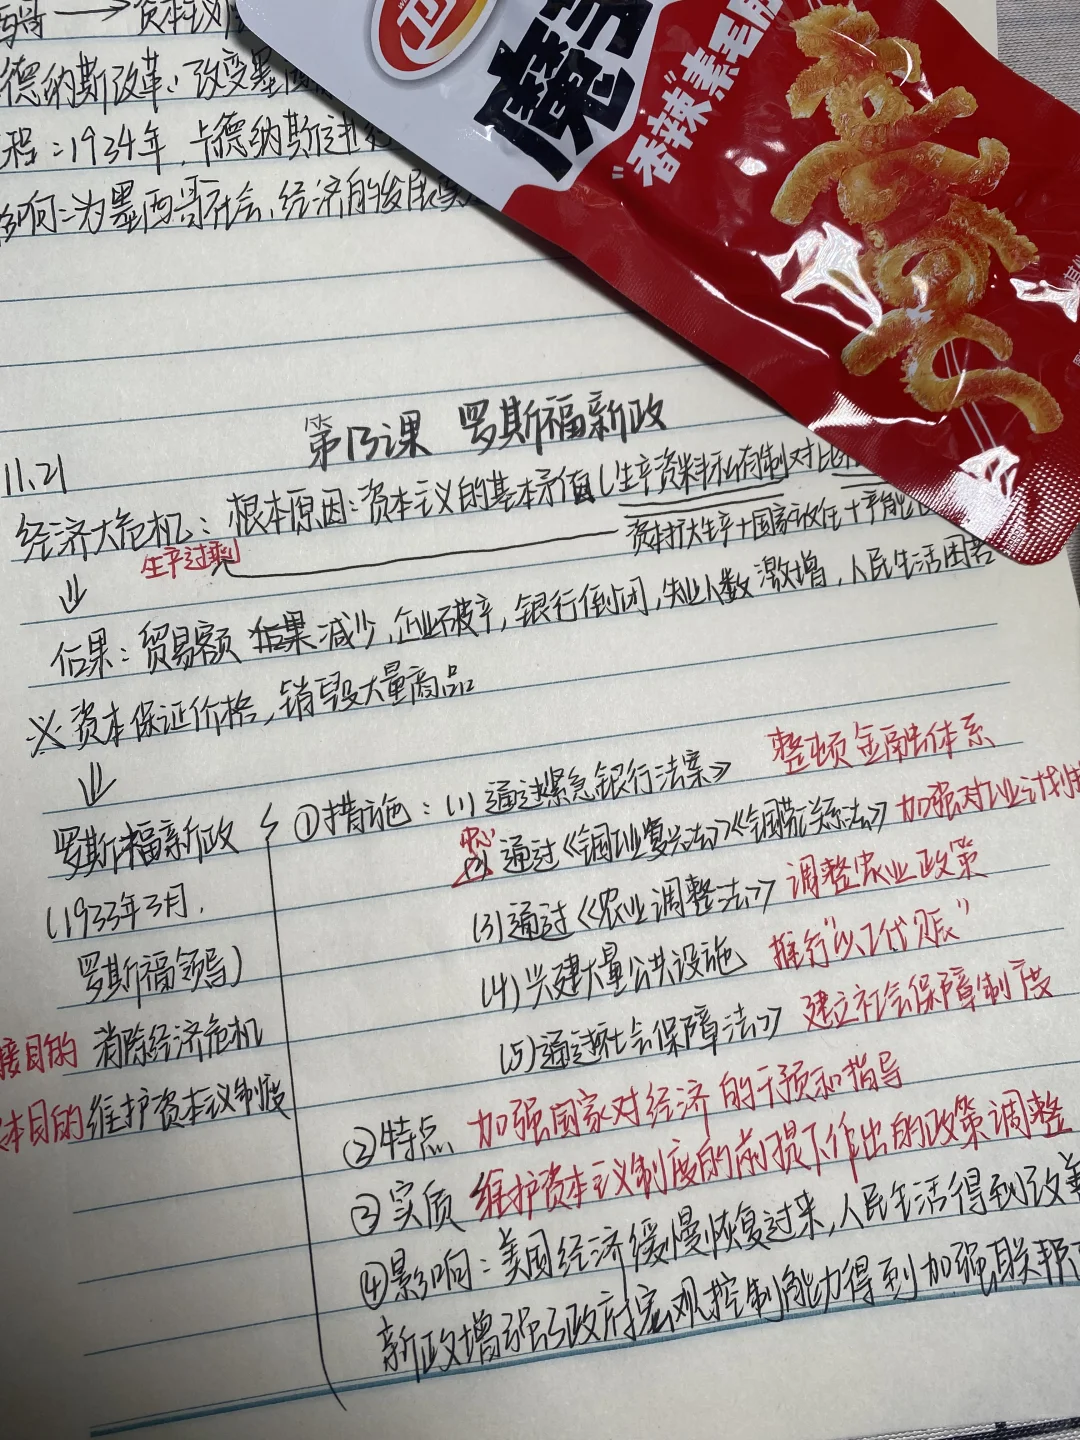 西哥 → 资本主义
德纳斯改革：改变墨西
程：1934年，卡德纳斯进
影响：为墨西哥社会、经济的发展
卫
魔
"香辣"素毛肚
第13课 罗斯福新政
11.21
经济大危机：根本原因：资本主义的基本矛盾（生产资料私有制对比
生产过剩
资本扩大生产+国家放任+
后果：贸易额 减少，企业破产，银行倒闭，失业人数激增，人民生活困苦
※资本保证价格，销毁大量商品
罗斯福新政
（1933年3月，
罗斯福领导）
接目的 消除经济危机
本目的 维护资本主义制度
①措施：（1）通过紧急银行法案》 整顿金融体系
中心
（2）通过《全国工业复兴法》《全国劳工关系法》 加强对工业计划
（3）通过《农业调整法》 调整农业政策
（4）兴建大量公共设施 推行"以工代赈"
（5）通过社会保障法》 建立社会保障制度
②特点 加强国家对经济的干预和指导
③实质 维护资本主义制度的前提下作出的政策调整
④影响：美国经济缓慢恢复过来，人民生活得到改善
新政增强了政府宏观控制能力得到加强联邦